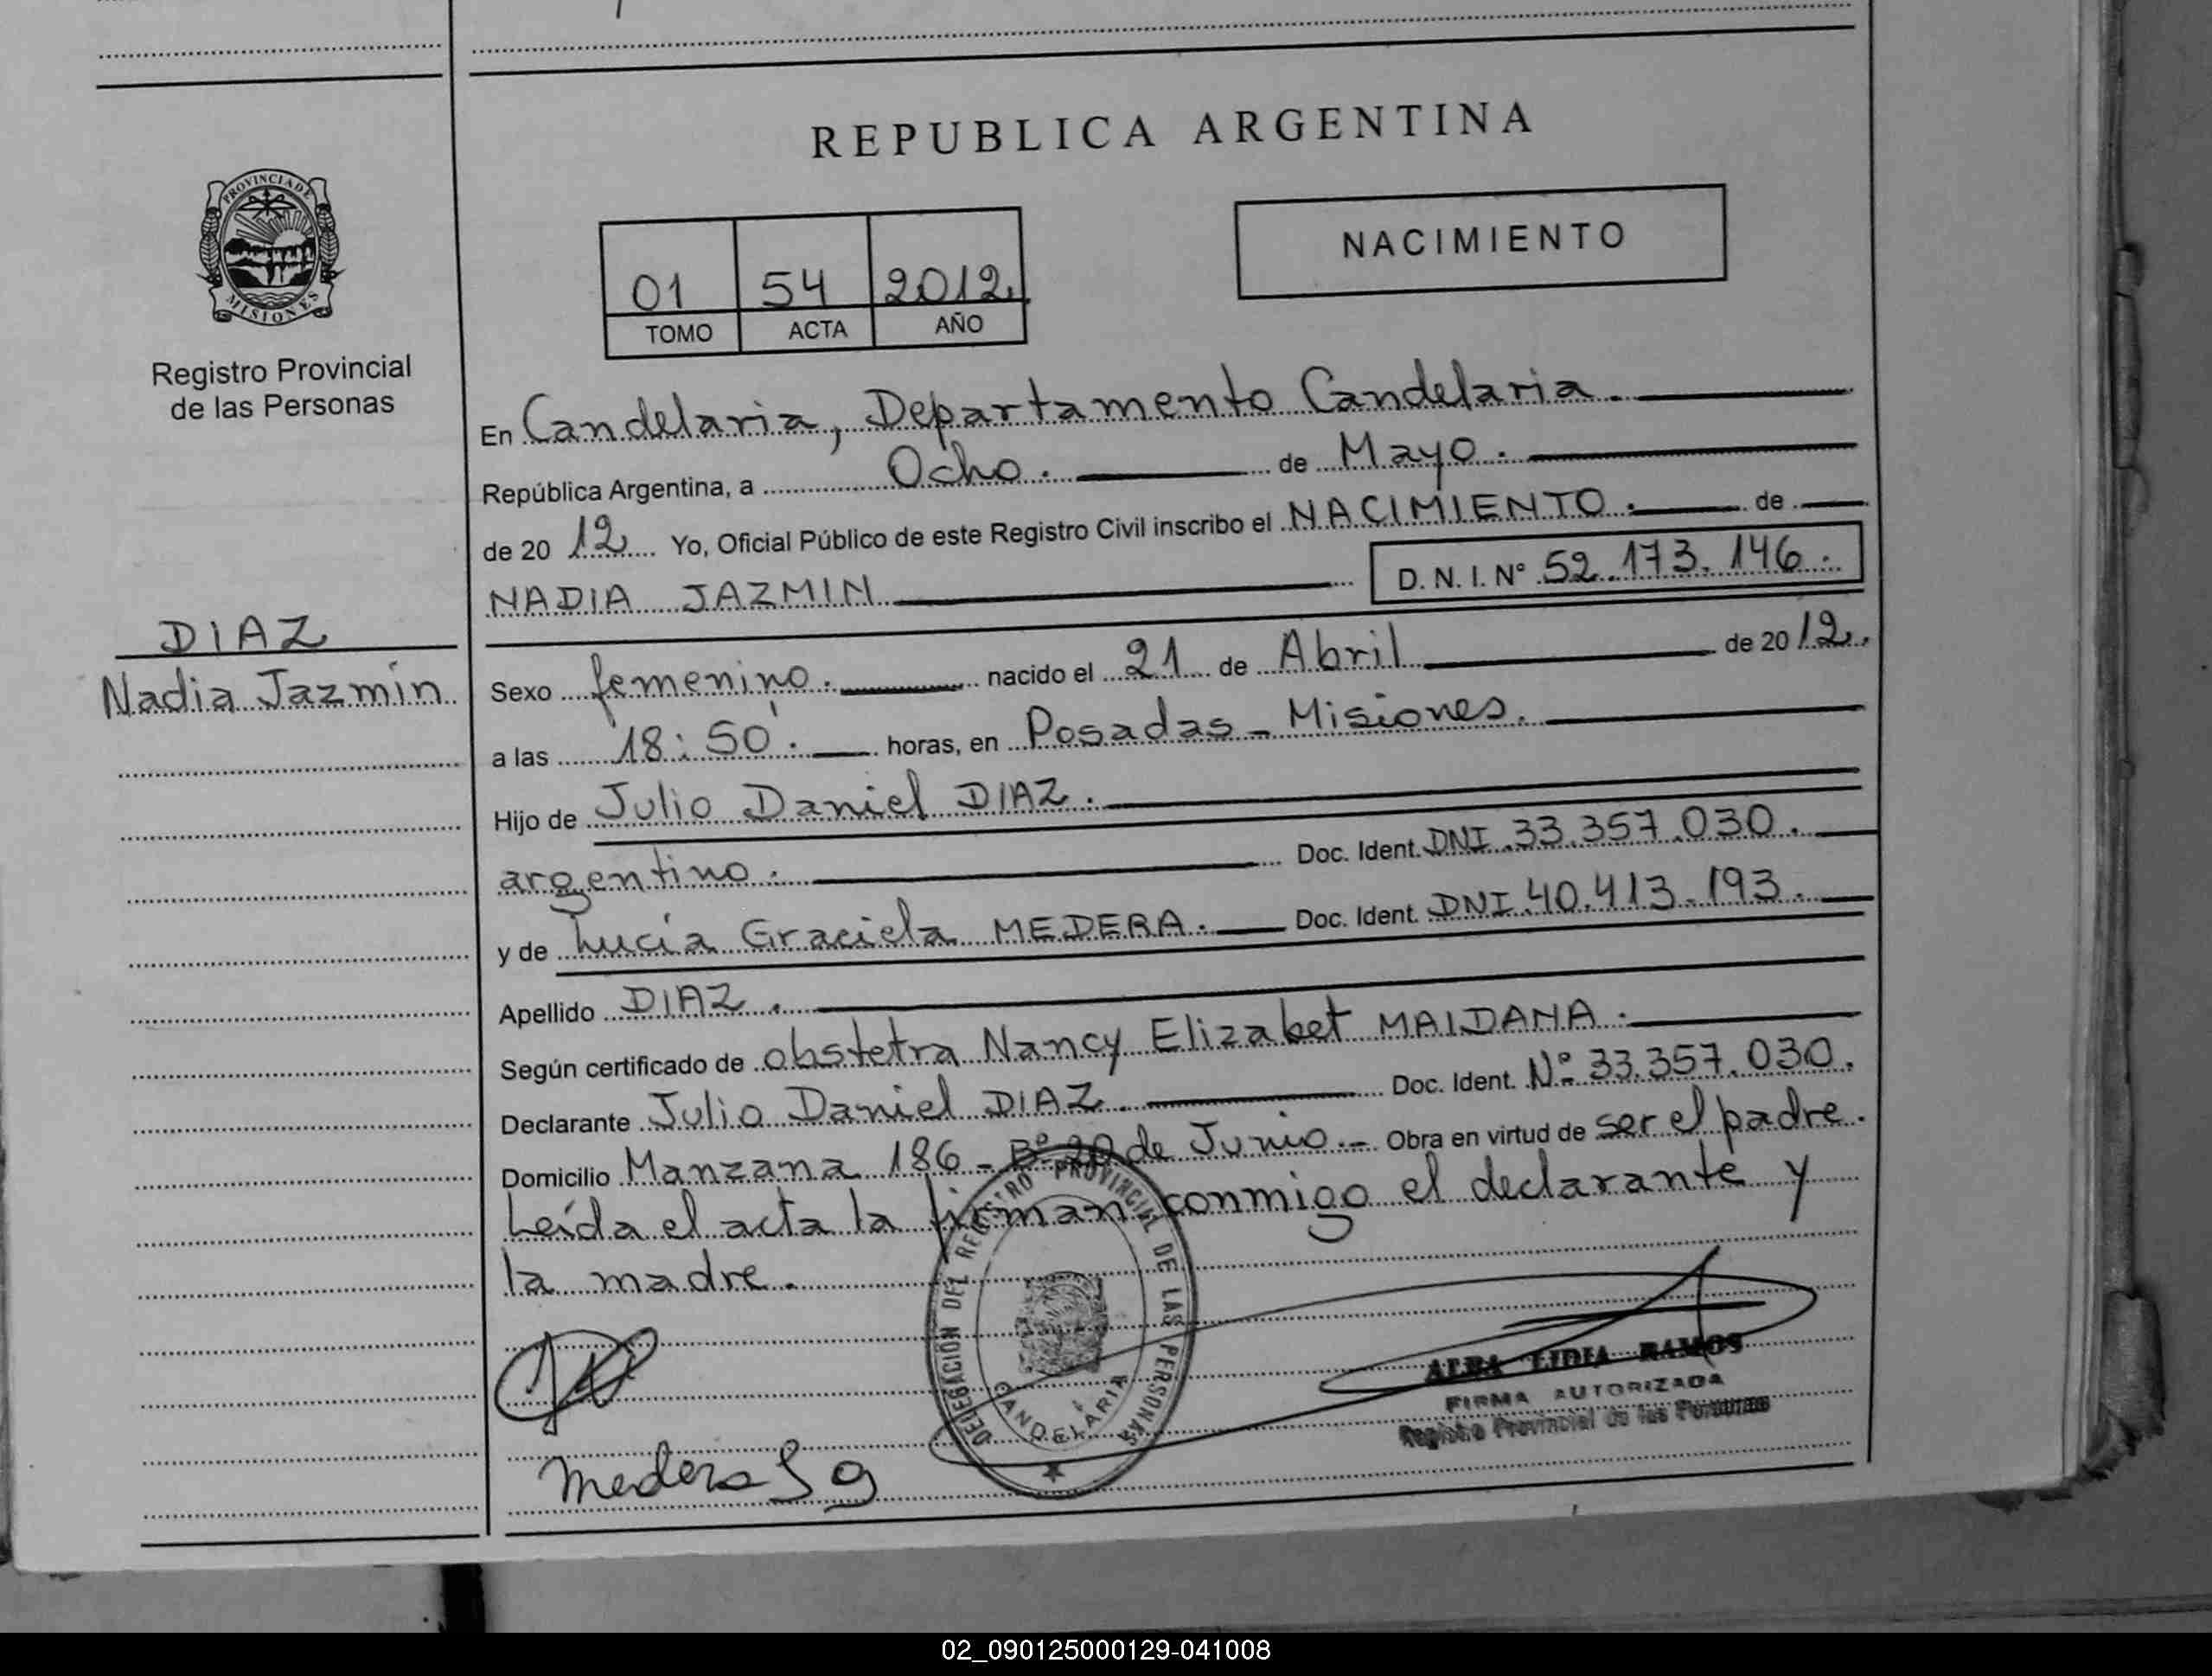 REPUBLICA ARGENTINA
PROVINCIA DE
MISIONES
Registro Provincial
de las Personas
NACIMIENTO
01 54 2012.
TOMO ACTA AÑO
En Candelaria, Departamento Candelaria.
República Argentina, a Ocho. de Mayo.
de 20 12 Yo, Oficial Público de este Registro Civil inscribo el NACIMIENTO. de
NADIA JAZMIN D. N. I. N° 52.173.146.
DIAZ
Nadia Jazmín
Sexo femenino. nacido el 21 de Abril de 20 12.
a las 18:50'. horas, en Posadas - Misiones.
Hijo de Julio Daniel DIAZ.
argentino. Doc. Ident. DNI.33.357.030.
y de Lucía Graciela MEDERA. Doc. Ident. DNI.40.413.193.
Apellido DIAZ.
Según certificado de obstetra Nancy Elizabet MAIDANA.
Declarante Julio Daniel DIAZ. Doc. Ident. Nº 33.357.030.
Domicilio Manzana 186 - Bº 20 de Junio.- Obra en virtud de ser el padre.
Leída el acta la firman conmigo el declarante y
la madre.
DELEGACIÓN DEL REGISTRO PROVINCIAL DE LAS PERSONAS
CANDELARIA
ALBA LIDIA RAMOS
FIRMA AUTORIZADA
Registro Provincial de las Personas
Medera
02_090125000129-041008